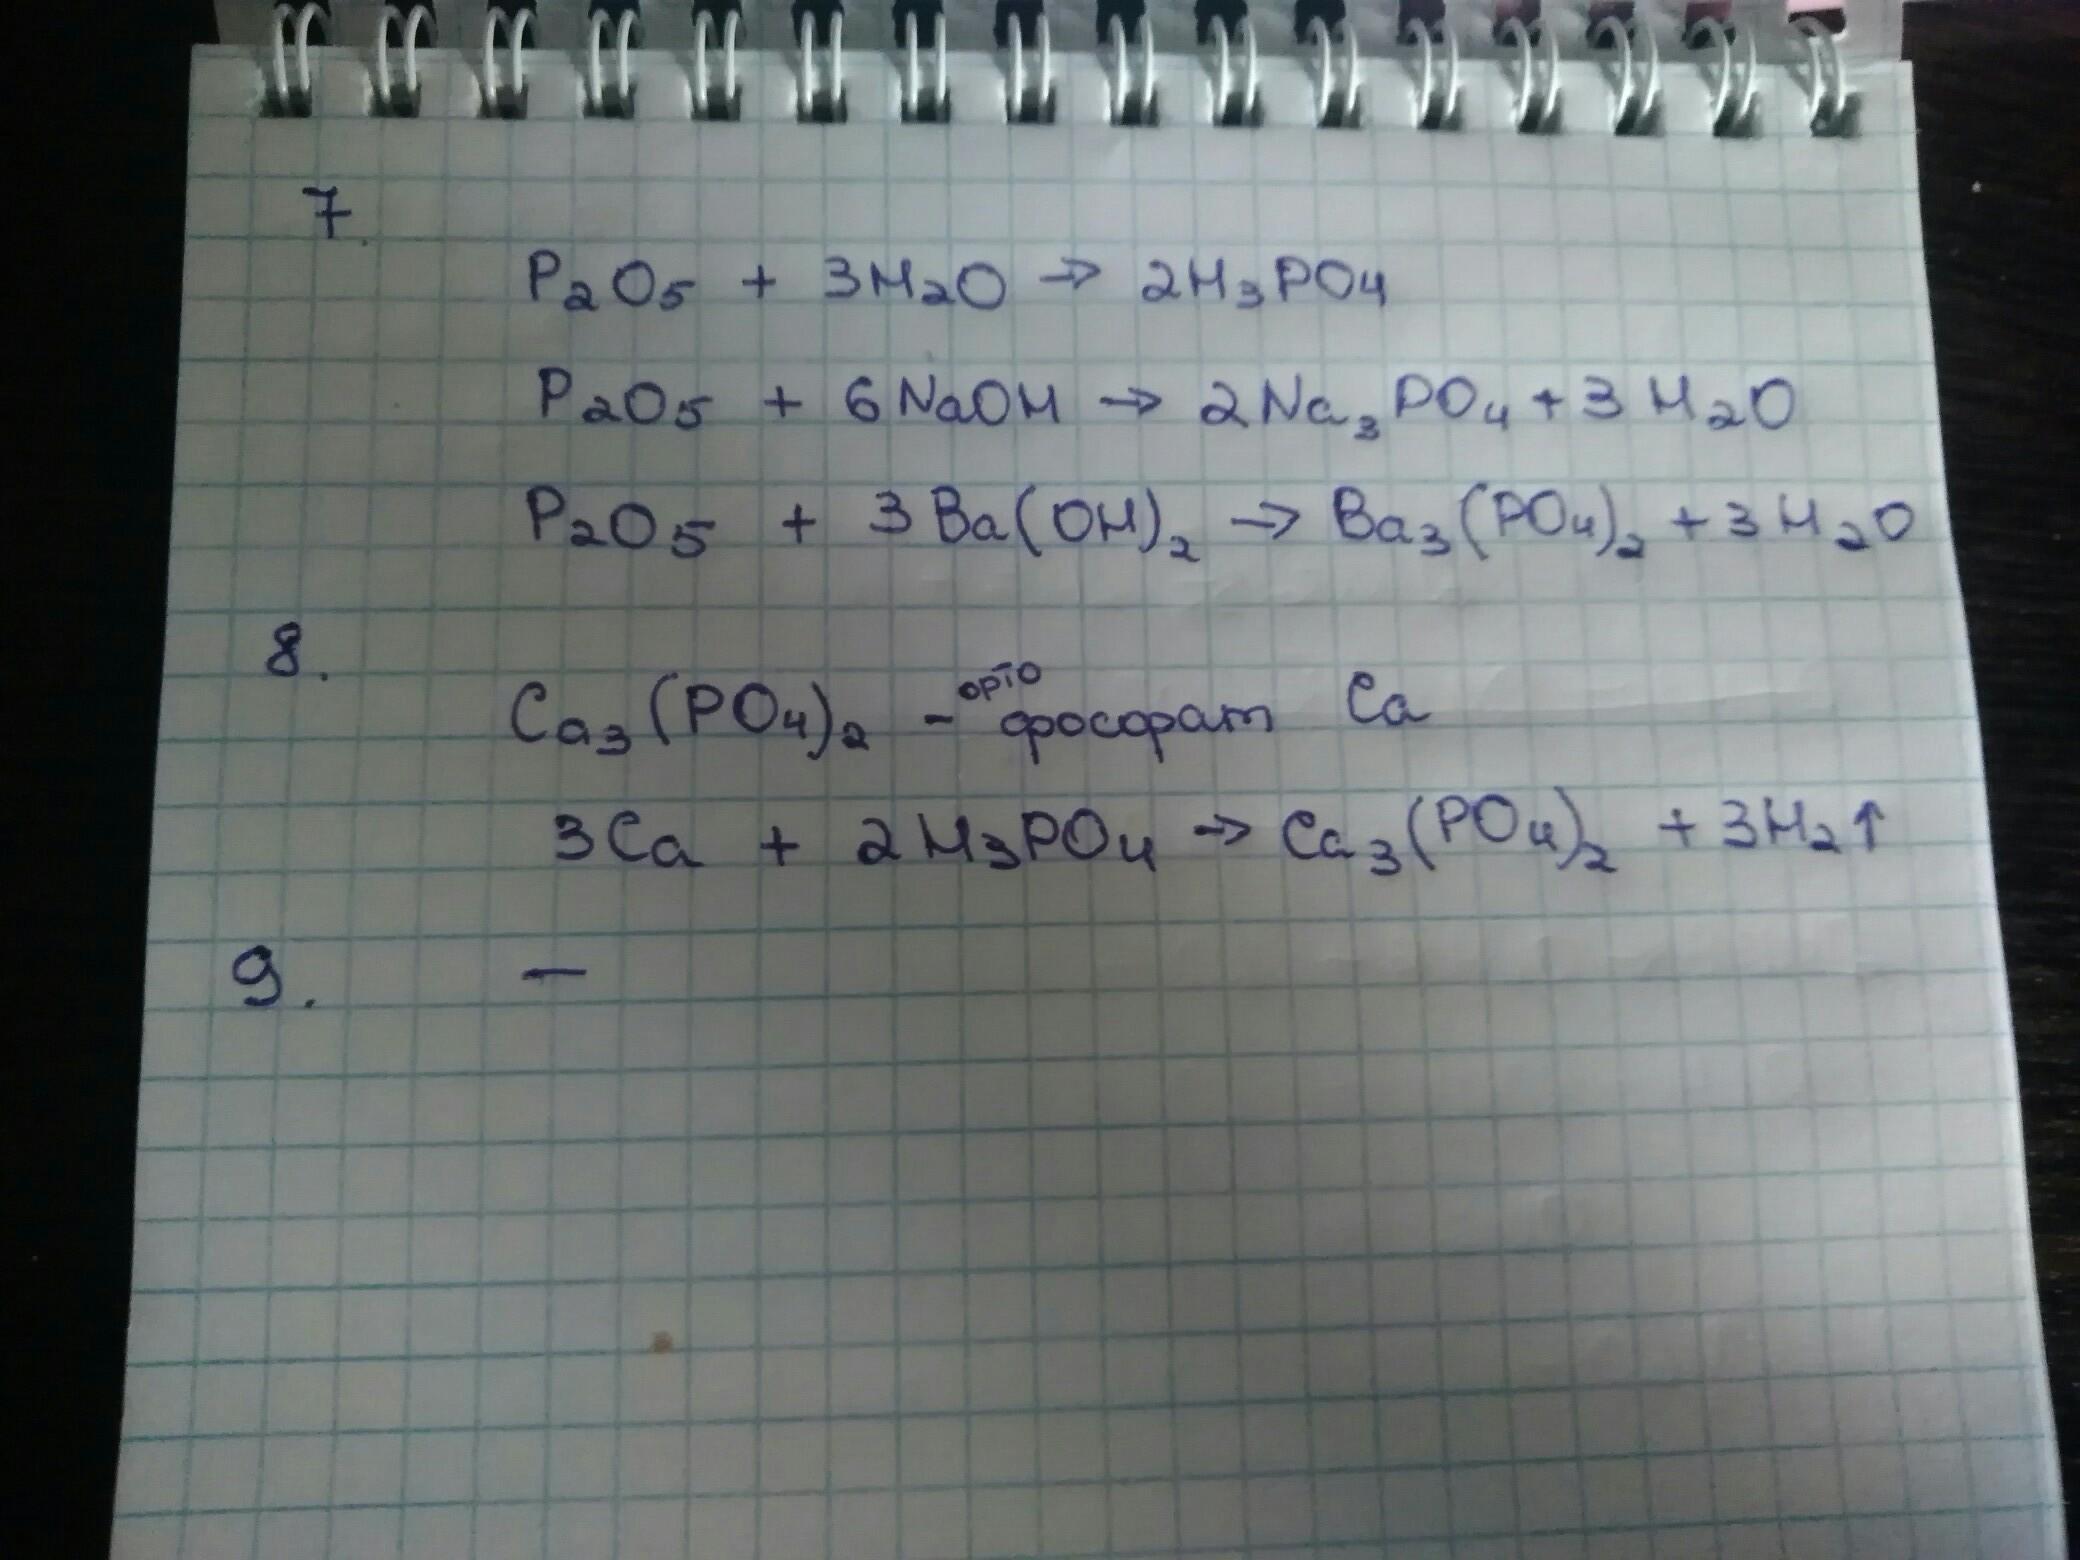 7.
P₂O₅ + 3H₂O → 2H₃PO₄
P₂O₅ + 6NaOH → 2Na₃PO₄ + 3H₂O
P₂O₅ + 3Ba(OH)₂ → Ba₃(PO₄)₂ + 3H₂O
8.
Ca₃(PO₄)₂ - ортофосфорат Ca
3Ca + 2H₃PO₄ → Ca₃(PO₄)₂ + 3H₂↑
9. —